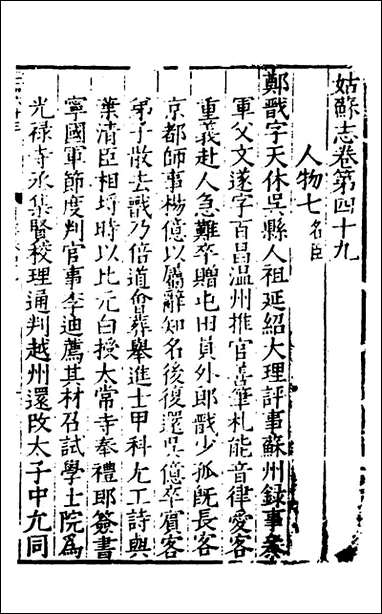 姑蘇志卷第四十九
人物七名臣
鄭戩字天休吳縣人祖延紹大理評事蘇州錄事叅
軍父文遂字百昌温州推官善筆札能音律愛客
重義赴人急難卒贈屯田員外郎戩少孤旣長客
京都師事楊億以屬辭知名後復還吳億卒賓客
弟子散去戩乃倍道會葬舉進士甲科尤工詩與
葉清臣相埒時以比元白授太常寺奉禮郎簽書
寧國軍節度判官事李迪薦其材召試學士院爲
光禄寺丞集賢校理通判越州還改太子中允同